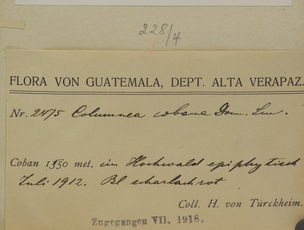 228/4
FLORA VON GUATEMALA, DEPT. ALTA VERAPAZ.
Nr. 2475 Columnea cobana Donn. Sm.
Coban 1350 met. im Hochwald epiphytisch
Juli 1912. Bl scharlachrot
Coll. H. von Türckheim.
Zugegangen VII. 1918.